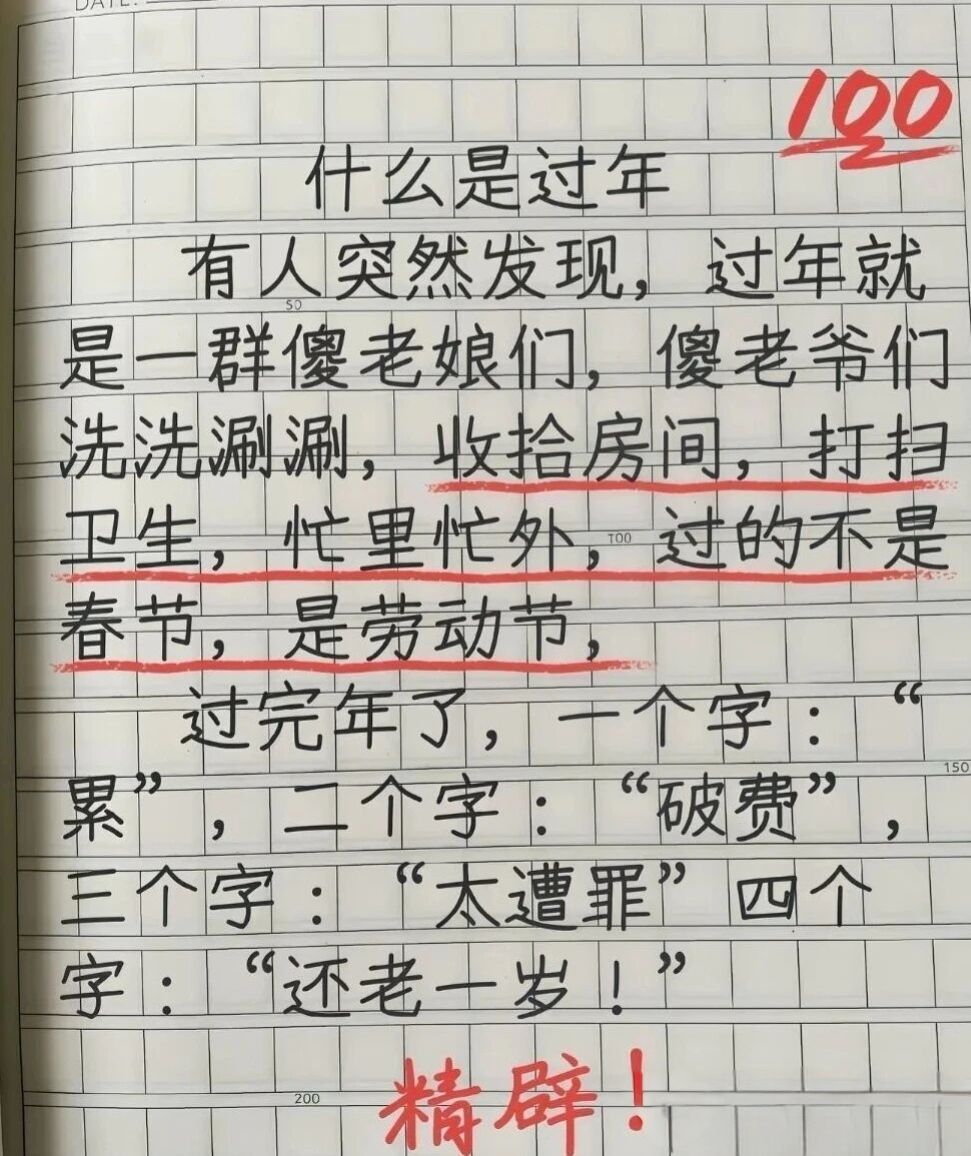 DATE:
100
什么是过年
有人突然发现，过年就
50
是一群傻老娘们，傻老爷们
洗洗涮涮，收拾房间，打扫
卫生，忙里忙外，过的不是
100
春节，是劳动节，
过完年了，一个字：“
150
累”，二个字：“破费”，
三个字：“太遭罪”四个
字：“还老一岁！”
200
精辟！